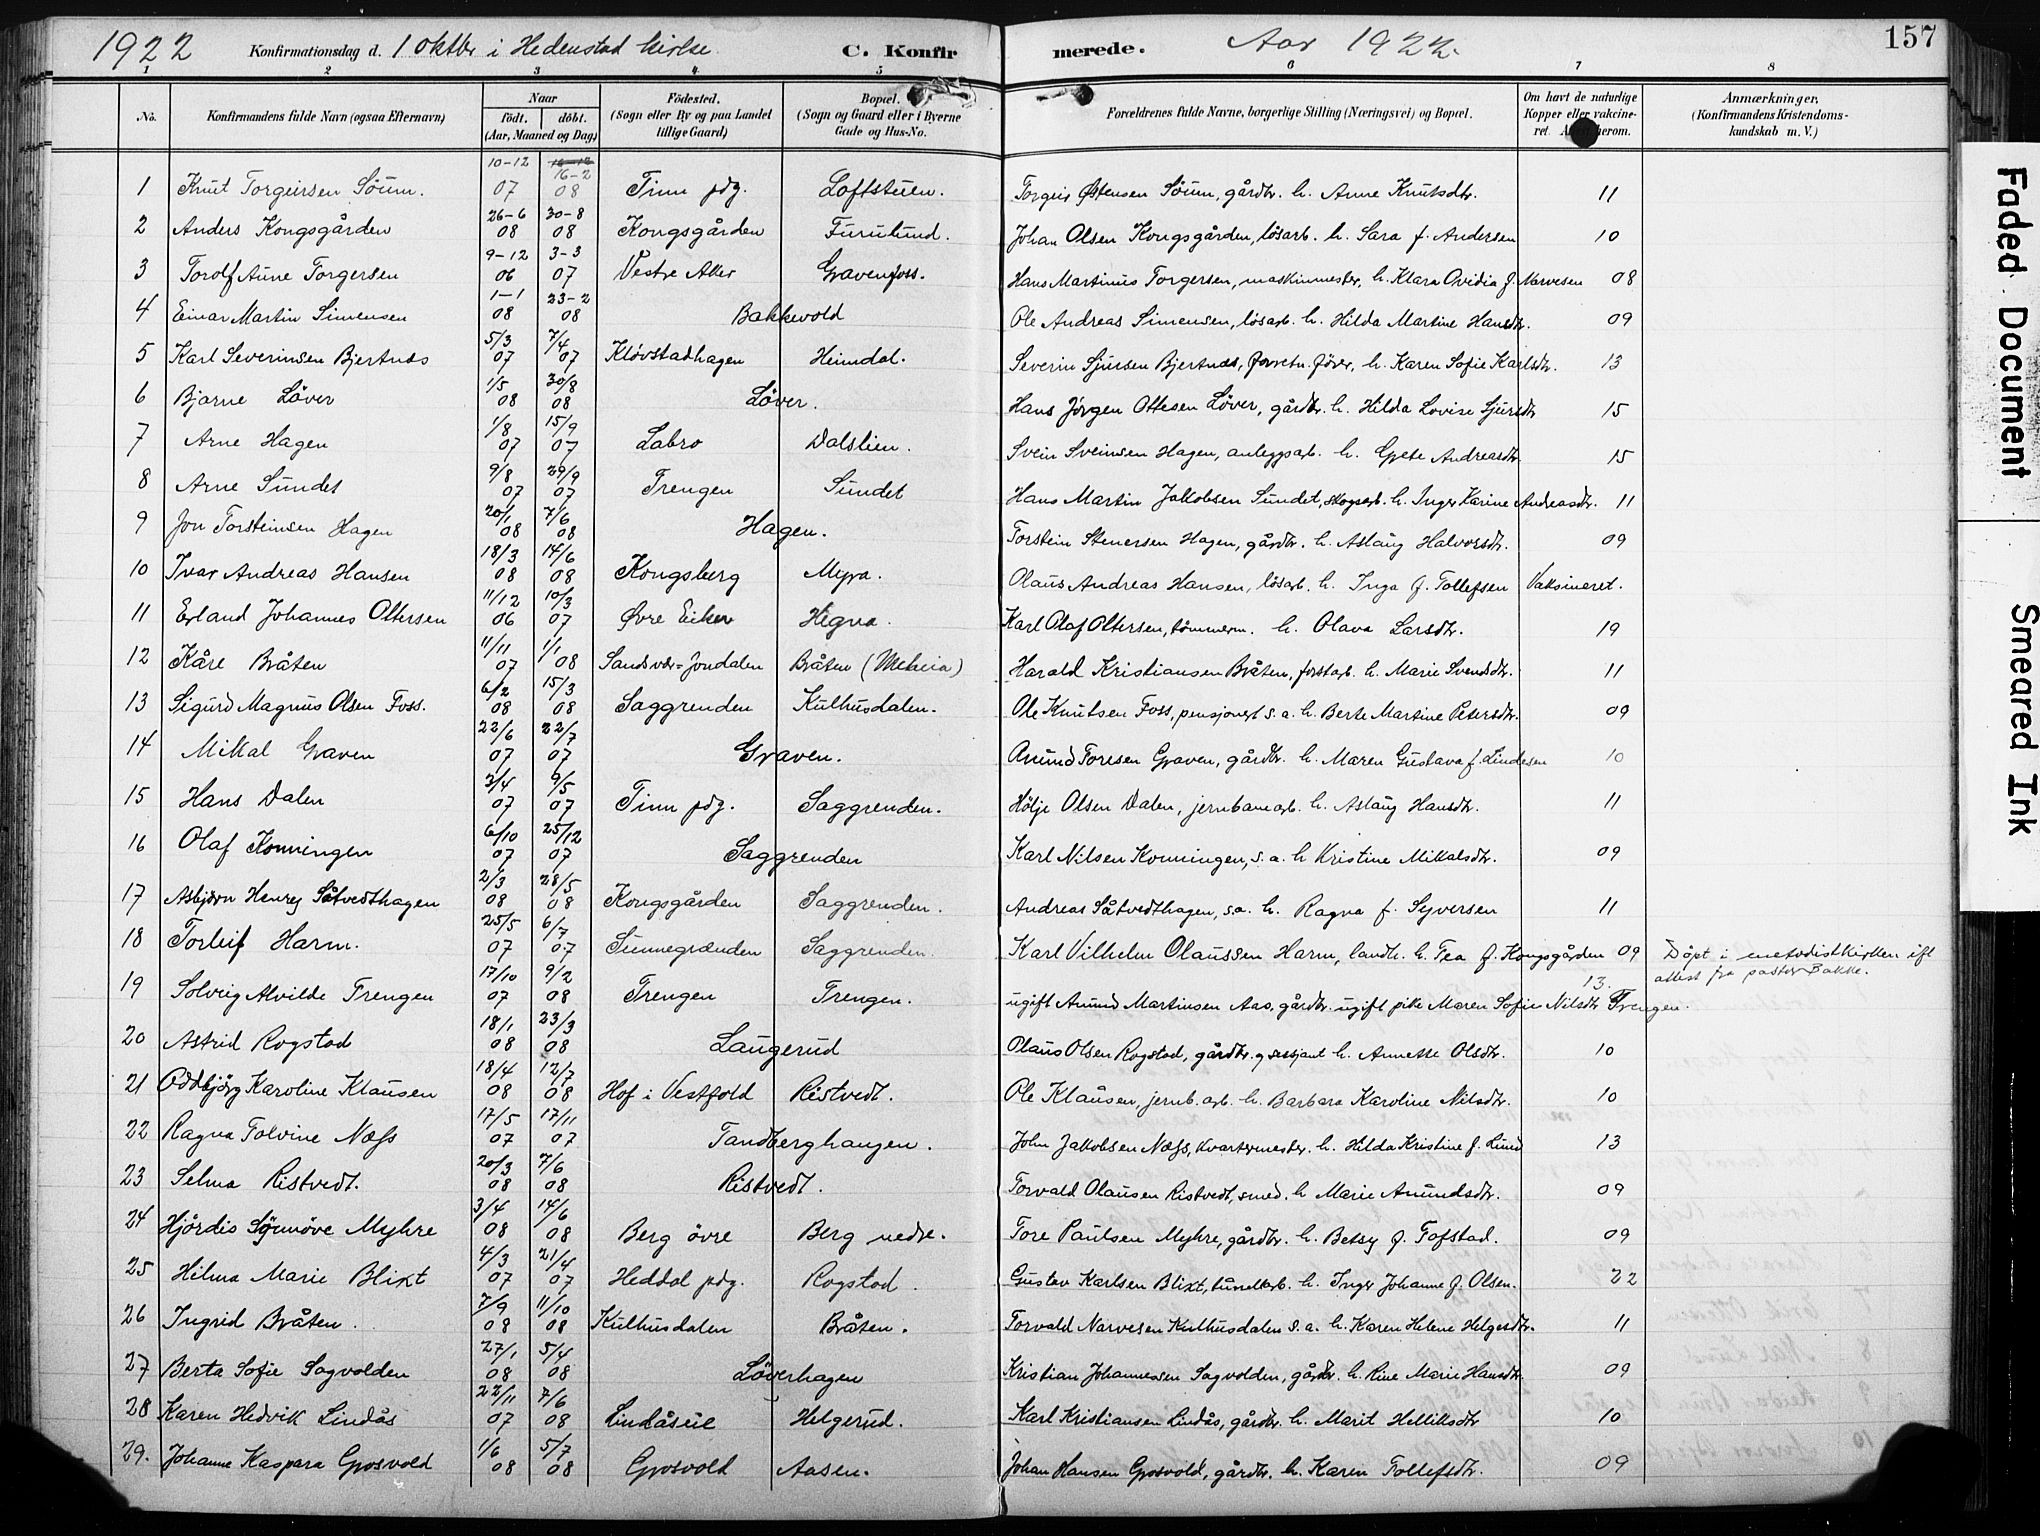 1922 Konfirmationsdag d. 1 oktbr i Hedenstad kirke. C. Konfirmerede. Aar 1922. 157
1 2 3 4 5 6 7 8
No. Konfirmandens fulde Navn (ogsaa Efternavn) Naar født. døbt. (Aar, Maaned og Dag) Fødested. (Sogn eller By og paa Landet tillige Gaard) Bopæl. (Sogn og Gaard eller i Byerne Gade og Hus-No. Forældrenes fulde Navne, borgerlige Stilling (Næringsvei) og Bopæl. Om havt de naturlige Kopper eller vakcineret. herom. Anmærkninger. (Konfirmandens Kristendomskundskab m. V.)
1 Knut Torgeirsen Söum. 10-12 07 16-2 08 Tinn pdg. Loftstuen. Torgeir Østensen Söum, gårdbr. h. Anne Knutsdtr. 11
2 Anders Kongsgården 26-6 08 30-8 08 Kongsgården Furulund. Johan Olsen Kongsgården, lösarb. h. Sara f. Andersen 10
3 Torolf Aune Torgersen 9-12 06 3-3 07 Vestre Aker Gravenfoss. Hans Martinus Torgersen, maskinmester, h. Klara Ovidia f. Narvesen 08
4 Einar Martin Simensen 1-1 08 23-2 08 Bakkevold Ole Andreas Simensen, lösarb. h. Hilda Martine Hansdtr. 09
5 Karl Severinsen Bjertnes 5/3 07 7/4 07 Klövstadhagen Heimdal. Severin Sjursen Bjertnes, forretn. förer, h. Karen Sofie Karlsdtr. 13
6 Bjarne Löver 1/5 08 30/8 08 Löver. Hans Jörgen Ottesen Löver, gårdbr. h. Hilda Lovise Sjursdtr 15
7 Arne Hagen 1/8 07 15/9 07 Labro Dalslien. Svein Sveinsen Hagen, anleggsarb. h. Grete Andreasdtr. 15
8 Arne Sundet 9/8 07 29/9 07 Trengen Sundet Hans Martin Jakobsen Sundet, skogsarb. h. Inger Karine Andreasdtr. 11
9 Jon Torsteinsen Hagen 20/1 08 7/6 08 Hagen. Torstein Stenersen Hagen, gårdbr. h. Aslaug Halvorsdtr. 09
10 Ivar Andreas Hansen 18/3 08 14/6 08 Kongsberg Myra. Olaus Andreas Hansen, lösarb. h. Inga f. Tollefsen Vaksineret.
11 Erland Johannes Oltersen 11/12 06 10/3 07 Øvre Eiker Hegna. Karl Olaf Oltersen, tömmerm. h. Olava Larsdtr. 19
12 Kåre Bråten 11/11 07 1/1 08 Sandsvær-Jondalen Bråten (Meheia) Harald Kristiansen Bråten, forstarb. h. Marie Svendsdtr. 11
13 Sigurd Magnus Olsen Foss. 6/2 08 15/3 08 Saggrenden Kulhusdalen. Ole Knutsen Foss, pensjonert s.a. h. Berte Martine Petersdtr. 09
14 Mikal Graven 22/6 07 22/7 07 Graven. Anund Toresen Graven, gårdbr. h. Maren Gustava f. Lindesen 10
15 Hans Dalen 3/4 07 9/5 07 Tinn pdg. Saggrenden. Hölje Olsen Dalen, jernbanearb. h. Aslaug Hansdtr. 11
16 Olaf Konningen 6/10 07 25/12 07 Saggrenden Karl Nilsen Konningen, s.a. h Kristine Mikalsdtr. 09
17 Asbjörn Henry Såtvedthagen 2/3 08 28/5 08 Kongsgården Saggrenden. Andreas Såtvedthagen, s.a. h. Ragna f. Syversen 11
18 Torleif Harm. 25/5 07 6/7 07 Sunnegrænden Saggrenden. Karl Vilhelm Olaussen Harm, landh. h. Tea f. Kongsgården 09 Döpt i metodistkirken ifl attest fra pastor Bakke.
19 Solveig Alvilde Trengen 17/10 07 9/2 08 Trengen Trengen. ugift Anund Martinsen Aas, gårdbr. ugift pike Maren Sofie Nilsdtr Trengen. 13.
20 Astrid Rogstad 18/1 08 23/3 08 Laugerud Olaus Olsen Rogstad, gårdbr. og sersjant h. Annette Olsdtr. 10
21 Oddbjörg Karoline Klausen 18/4 08 12/7 08 Hof i Vestfold Ristvedt. Ole Klausen, jernb.arb. h. Barbara Karoline Nilsdtr. 10
22 Ragna Tolvine Næss 17/5 07 17/11 07 Tandberghaugen. John Jakobsen Næss, kvartermester. h. Hilda Kristine f. Lund 13
23 Selma Ristvedt. 20/3 08 7/6 08 Ristvedt. Torvald Olausen Ristvedt, smed. h Marie Anundsdtr. 09
24 Hjördis Synnöve Myhre 3/4 08 14/6 08 Berg övre Berg nedre. Tore Paulsen Myhre, gårdbr. h. Betsy f. Tofstad. 09
25 Hilma Marie Blixt 4/3 07 21/4 07 Heddal pdg. Rogstad. Gustav Karlsen Blixt, tunnelarb. h. Inger Johanne f. Olsen. 22
26 Ingrid Bråten. 7/9 08 11/10 08 Kulhusdalen Bråten. Torvald Narvesen Kulhusdalen s.a. h. Karen Helene Helgesdtr. 11
27 Berta Sofie Sagvolden 27/1 08 5/4 08 Löverhagen Kristian Johannessen Sagvolden, gårdbr. h. Rine Marie Hansdtr. 09
28 Karen Hedvik Lindås 22/11 07 7/6 08 Lindåseie Helgerud. Karl Kristiansen Lindås, gårdbr. h. Marit Helliksdtr 10
29. Johanne Kaspara Grosvold 1/6 08 5/7 08 Grosvold Aasen. Johan Hansen Grosvold, gårdbr. h. Karen Tollefsdtr. 09
Faded Document
Smeared Ink